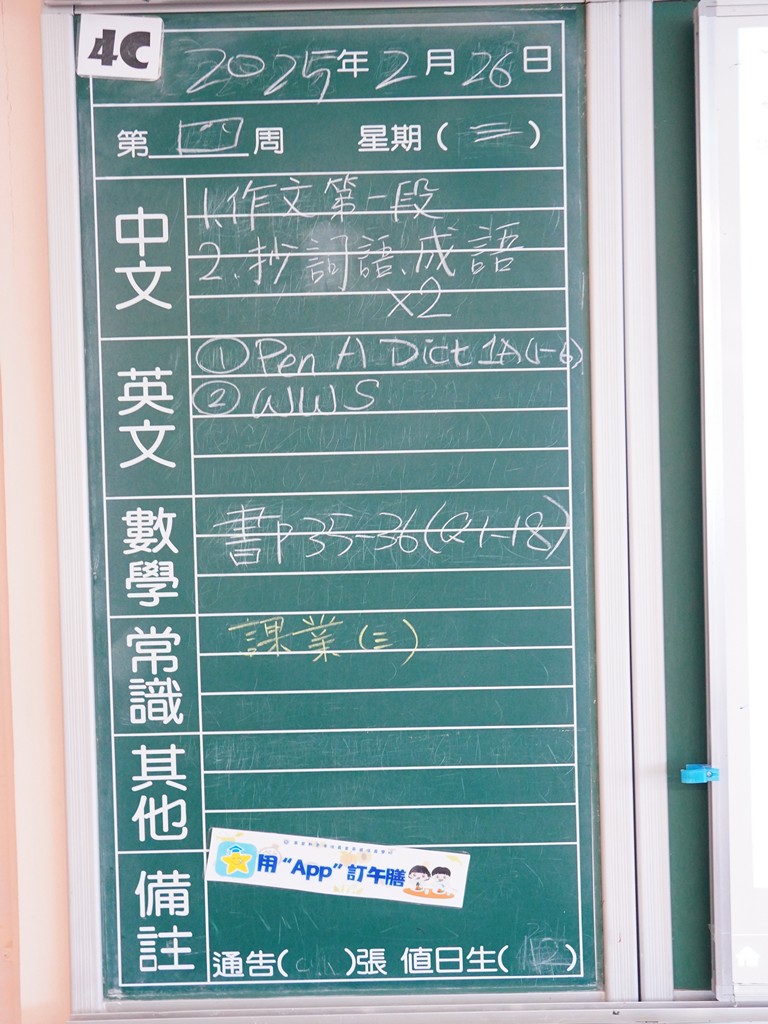 4C
2025年2月26日
第四周 星期(三)
中文
1.作文第一段
2.抄詞語、成語
×2
英文
① Pen A Dict 1A(1-6)
② WWS
數學
書P35-36(Q1-18)
常識
課業(三)
其他
備註
用“App”訂午膳
通告( )張 值日生( )